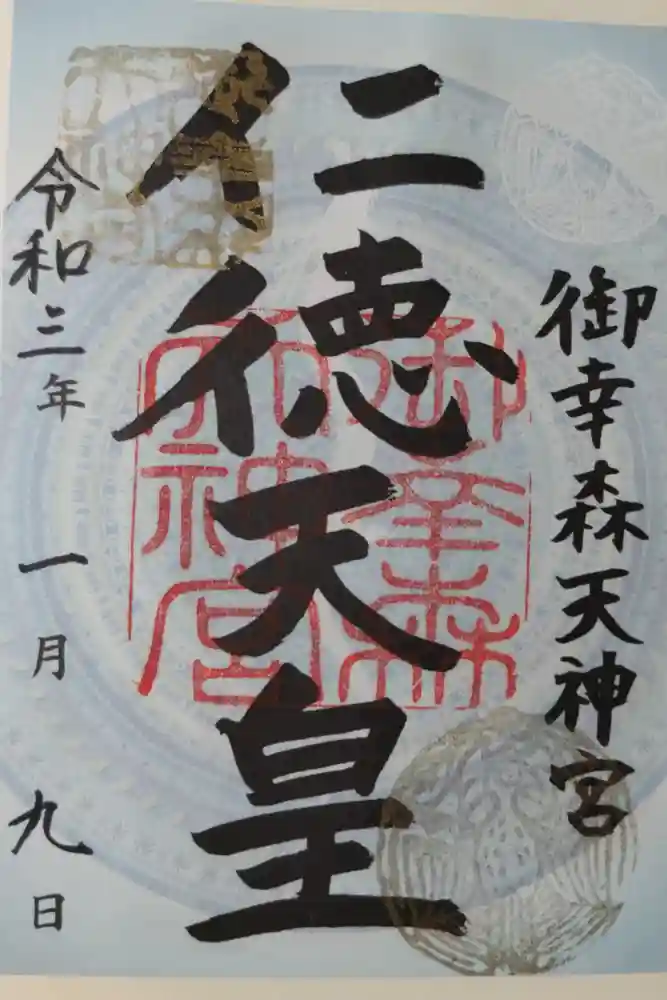 御幸森天神宮
仁徳天皇
令和三年 一月 九日
御幸森
天神宮